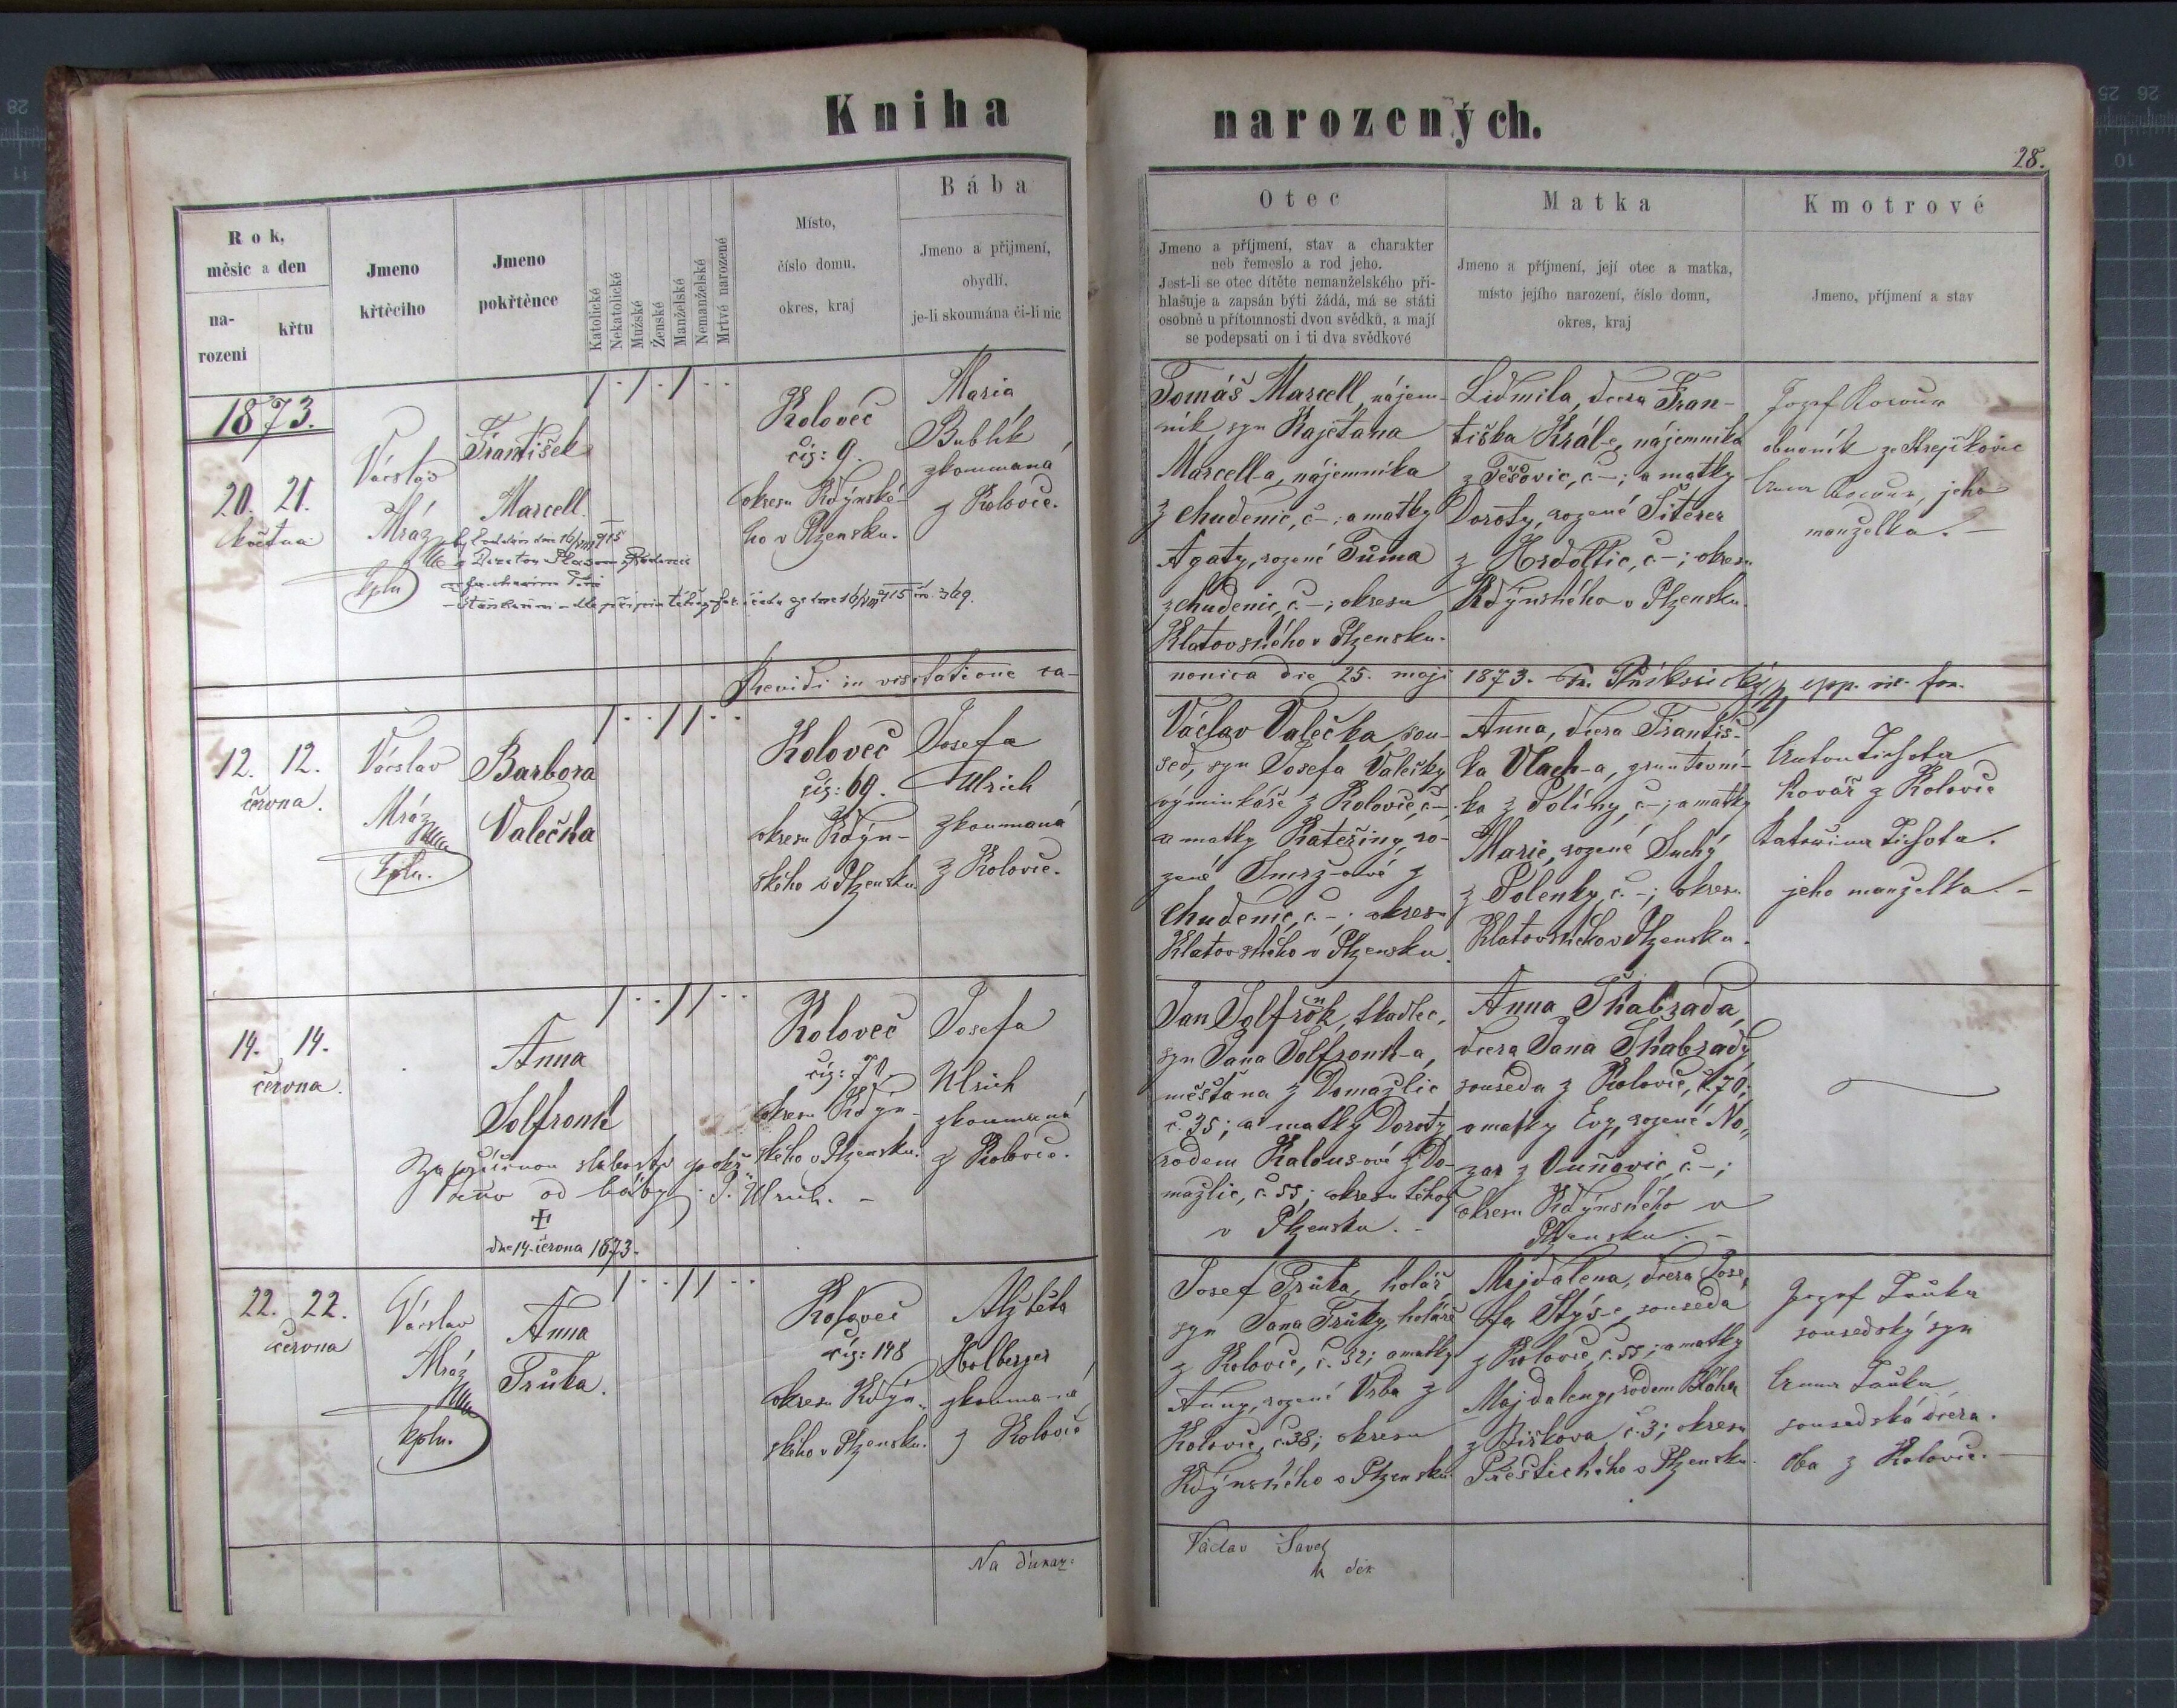 Kniha
narozených.
28.
Rok,
měsíc a den
na-
rozeni
křtu
Jmeno
křtěcího
Jmeno
pokřtěnce
Katolické
Nekatolické
Mužské
Ženské
Manželské
Nemanželské
Mrtvě narozené
Místo,
číslo domu,
okres, kraj
Bába
Jmeno a přijmení,
obydlí,
je-li skoumána či-li nic
Otec
Jmeno a příjmení, stav a charakter
neb řemeslo a rod jeho.
Jest-li se otec dítěte nemanželského při-
hlašuje a zapsán býti žádá, má se státi
osobně u přítomnosti dvou svědků, a mají
se podepsati on i ti dva svědkové
Matka
Jmeno a příjmení, její otec a matka,
místo jejího narození, číslo domu,
okres, kraj
Kmotrové
Jmeno, příjmení a stav
1873.
20. 21.
května
Václav
Mráz
kpln
František
Marcell.
Koloveč
čís: 9.
okresu Kdýnské-
ho v Plzensku.
Maria
Bublík
zkoumaná
z Kolovče.
Tomáš Marcell, nájem-
ník, syn Kajetana
Marcell-a, nájemníka
z Chudenic, č –; a matky
Agaty, rozené Tůma
z Chudenic, č –; okresu
Klatovského v Plzensku.
Lidmila, dcera Fran-
tiška Král-e, nájemníka
z Těšovic, č –; a matky
Doroty, rozené Šiterer
z , č –; okresu
Kdýnského v Plzensku.
Jozef Kocour
obuvník ze Strejčkovic
Anna Kocour, jeho
manželka. –
Revidi in visitatione ca-
nonica die 25. maji 1873.
12. 12.
června.
Václav
Mráz
kpln.
Barbora
Valečka
Koloveč
čís: 69.
okresu Kdýn-
ského v Plzensku.
Josefa
Ulrich
zkoumaná
z Kolovče.
Václav Valečka, sou-
sed, syn Josefa Valečky
výminkáře z Kolovče, č –;
a matky Kateřiny, ro-
zené Smrz-ové z
Chudenic, č. –; okresu
Klatovského v Plzensku.
Anna, dcera Františ-
ka Vlach-a, gruntovní-
ka z Poliny, č –; a matky
Marie, rozené Suchý
z Polenky, č –; okresu
Klatovského v Plzensku.
Anton Tichota
kovář z Kolovče
Kateřina Tichota.
jeho manželka. –
14. 14.
června.
Anna
Solfronk
Za příčinou slabosti pokř-
těno od báby: J. Ulrich. –
dne 14. června 1873.
Koloveč
čís: 70.
okresu Kdýn-
ského v Plzensku.
Josefa
Ulrich
zkoumaná
z Kolovče.
Jan Solfrönk, tkadlec,
syn Jana Solfronk-a,
měštana z Domažlic
č. 35; a matky Doroty
rodem Kalous-ové z Do-
mažlic, č. 55; okresu téhož
v Plzensku. –
Anna Skabrada,
dcera Jana Skabrady
souseda z Kolovče, č. 70;
a matky Evy, rozené No-
zar z Uňovic, č –;
okresu Kdýnského v
Plzensku. –
22. 22.
června
Václav
Mráz
kpln.
Anna
Trůka.
Koloveč
čís: 148
okresu Kdýn-
ského v Plzensku.
Alžběta
Holberger
zkouma-ná
z Kolovče
Josef Trůka, kolář,
syn Jana Trůky, koláře
z Kolovče, č. 32; a matky
Anny, rozené Vrba z
Kolovče, č. 38; okresu
Kdýnského v Plzensku.
Majdalena, dcera Jose-
fa Stýs-e, souseda
z Kolovče, č. 55; a matky
Majdaleny, rodem Bláha
z Biskova č. 3; okresu
Přeštického v Plzensku.
Jozef Trůka
sousedský syn
Anna Trůka
sousedská dcera.
Oba z Kolovče. –
Na důkaz:
Václav
děk